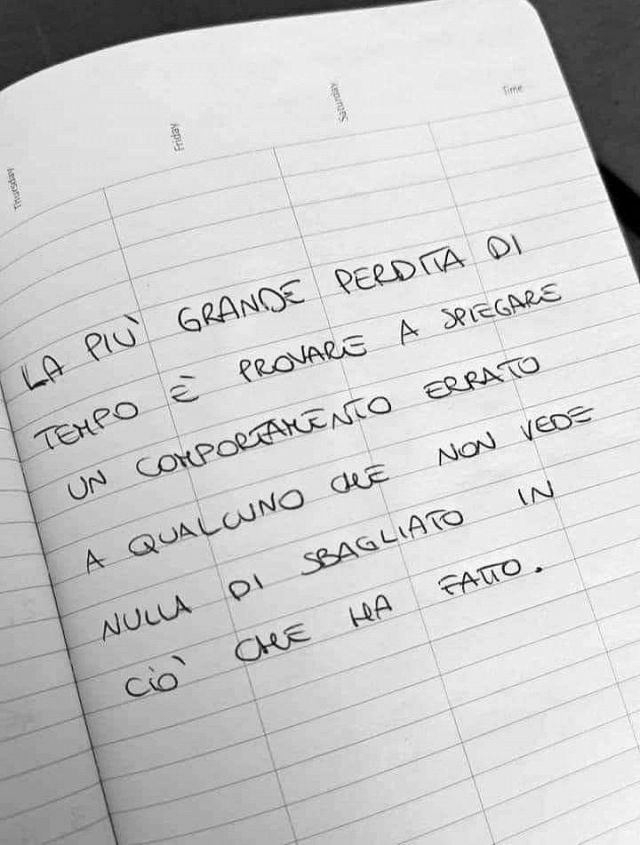 Thursday
Friday
Saturday
Time
LA PIÙ GRANDE PERDITA DI
TEMPO È PROVARE A SPIEGARE
UN COMPORTAMENTO ERRATO
A QUALCUNO CHE NON VEDE
NULLA DI SBAGLIATO IN
CIÒ CHE HA FATTO.